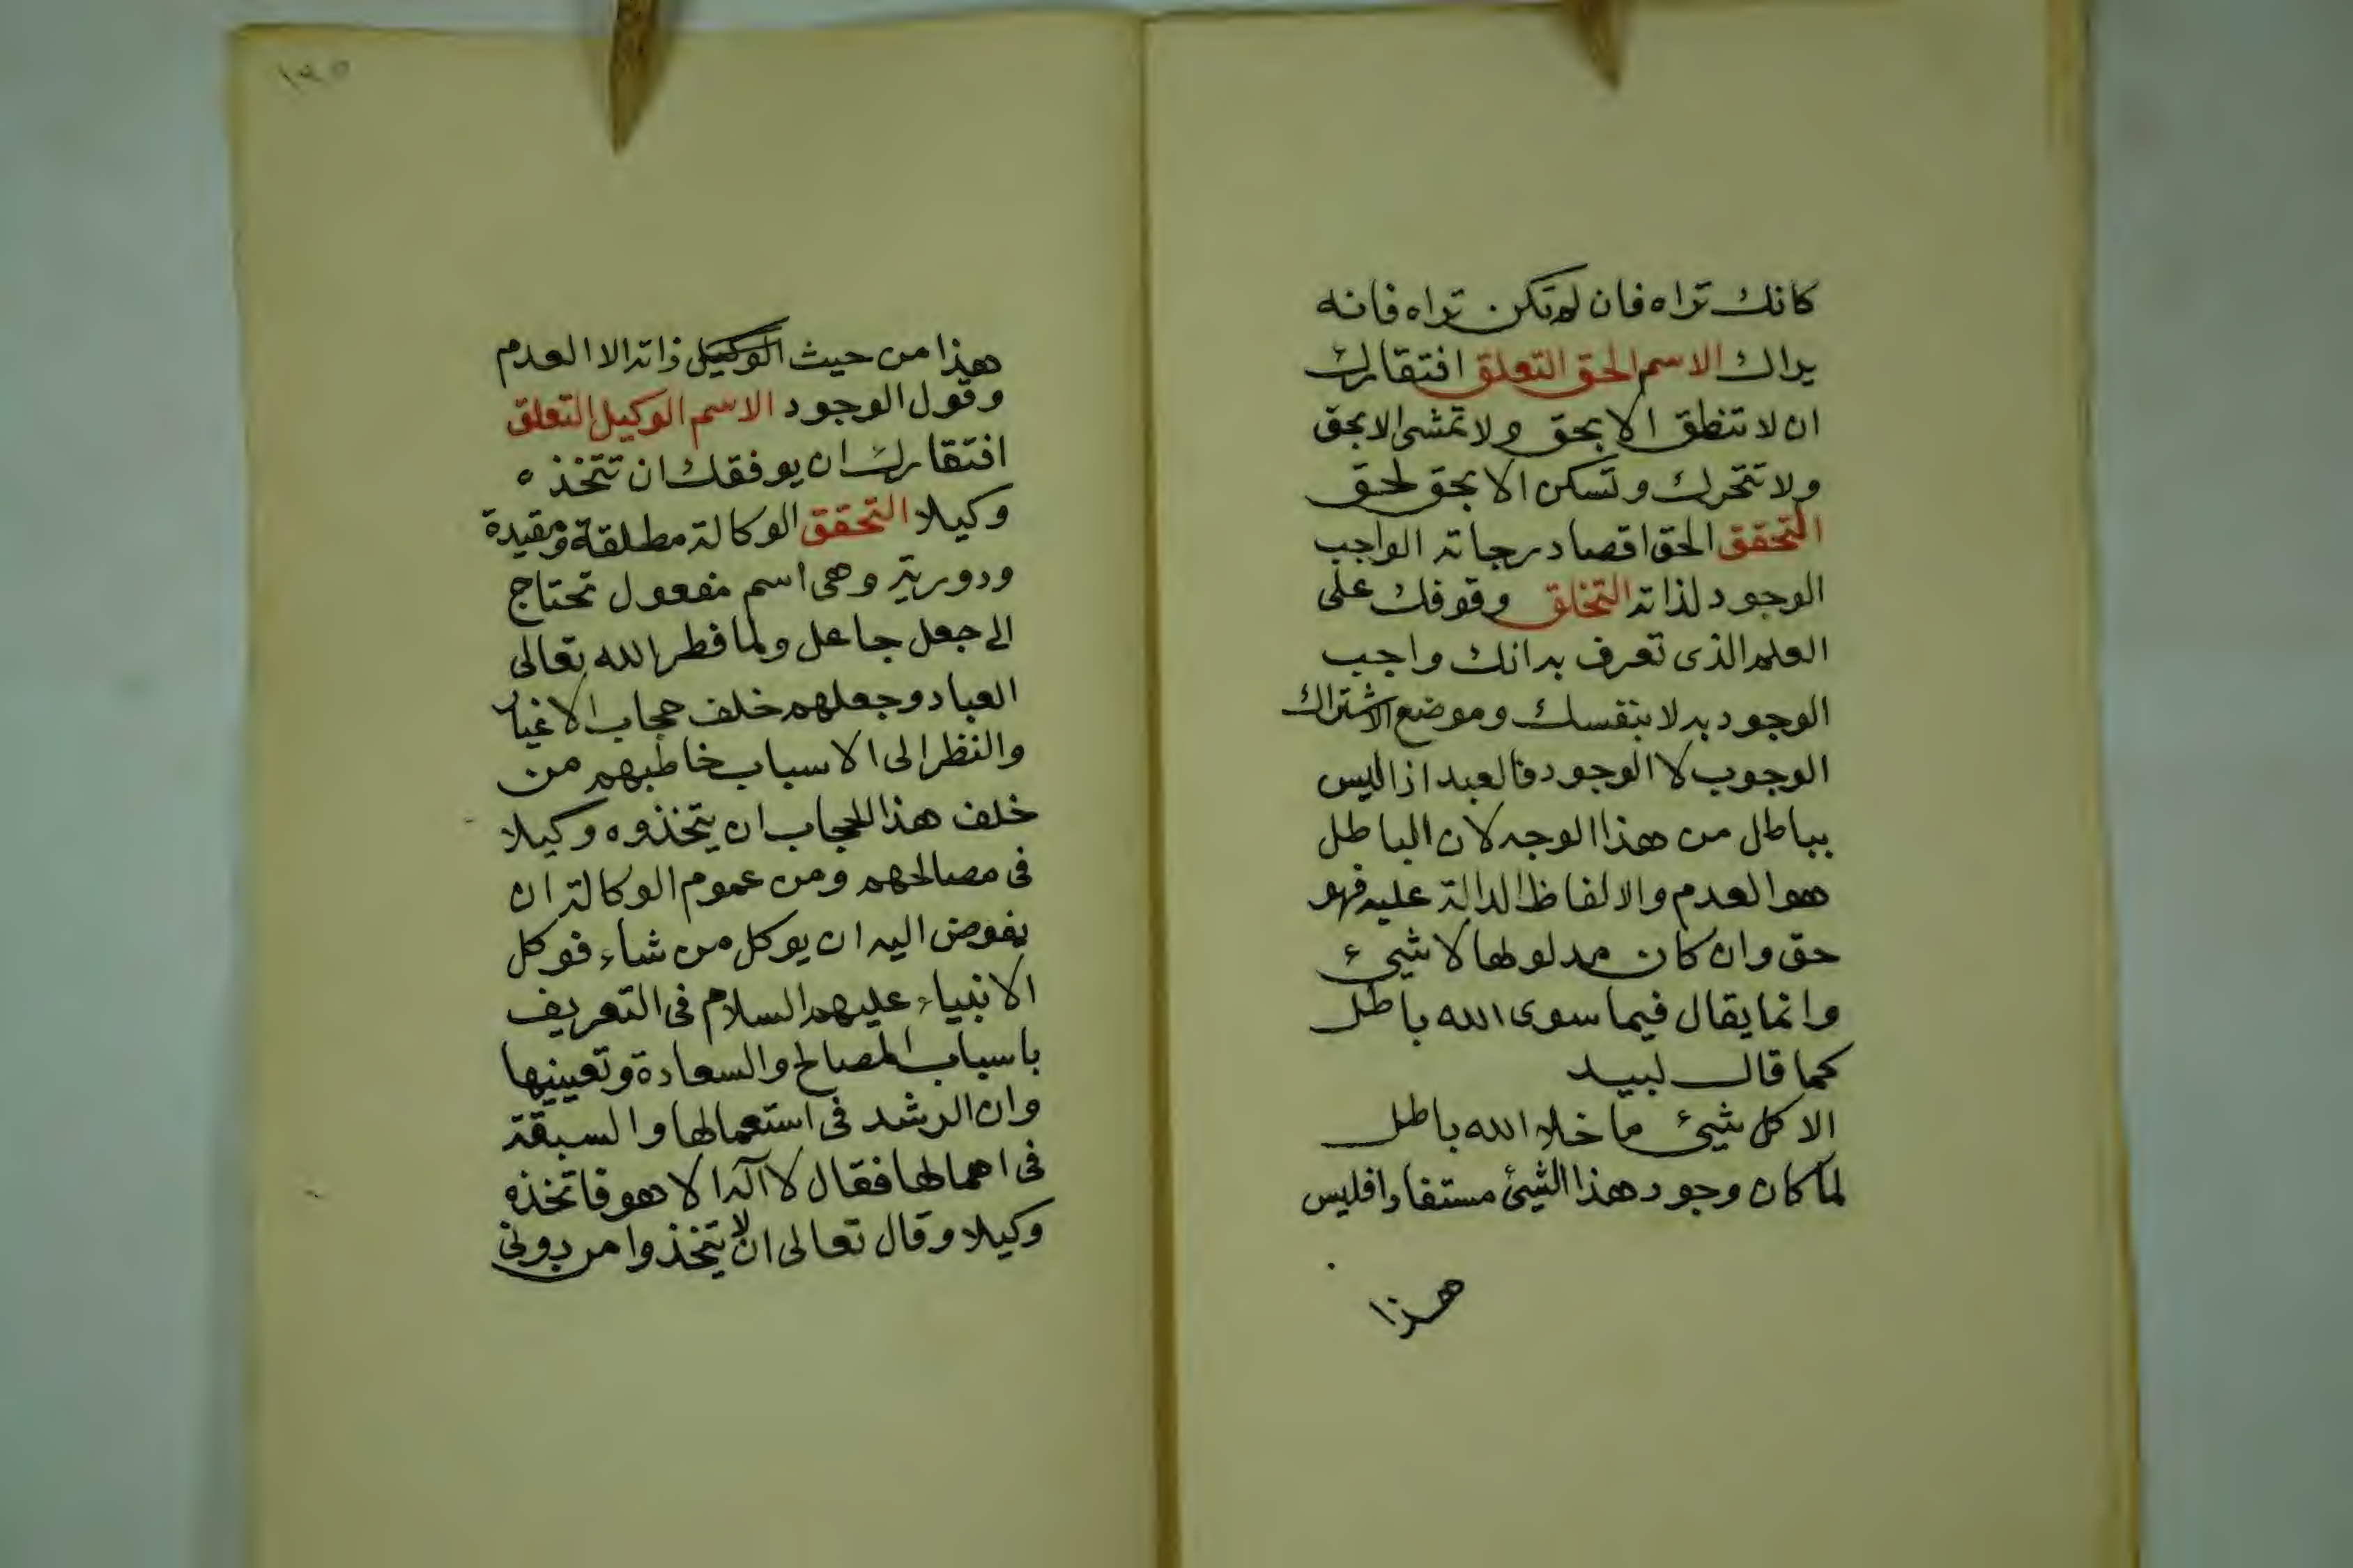 كانك تراه فان لم تكن تراه فانه
يراك الاسم الحق التعلق افتقارك
ان لا تنطق الا بحق ولا تمشى الا بحق
ولا تتحرك وتسكن الا بحق لحق
التحقق الحق اقصا درجاته الواجب
الوجود لذاته التخلق وقوفك على
العلم الذى تعرف به انك واجب
الوجود به لا بنفسك وموضع الاشتراك
الوجوب لا الوجود فالعبد اذا ليس
بباطل من هذا الوجه لان الباطل
هو العدم والالفاظ الدالة عليه فهو
حق وان كان مدلولها لا شيئ
وانما يقال فيما سوى الله باطل
كما قال لبيد
الا كل شيئ ما خلا الله باطل
لما كان وجود هذا الشيئ مستفادا فليس
هذا
١٣٥
هذا من حيث الوكيل ذاته الا العدم
وقول الوجود الاسم الوكيل التعلق
افتقارك ان يوفقك ان تتخذه
وكيلا التحقق الوكالة مطلقة ومقيدة
ودورية وهى اسم مفعول تحتاج
الى جعل جاعل ولما فطر الله تعالى
العباد وجعلهم خلف حجاب الاغيار
والنظر الى الاسباب خاطبهم من
خلف هذا الحجاب ان يتخذوه وكيلا
فى مصالحهم ومن عموم الوكالة ان
يفوض اليه ان يوكل من شاء فوكل
الانبياء عليهم السلام فى التعريف
باسباب المصالح والسعادة وتعيينها
وان الرشد فى استعمالها والسبقة
فى اهمالها فقال لا آله الا هو فاتخذه
وكيلا وقال تعالى ان لا يتخذوا من دونى